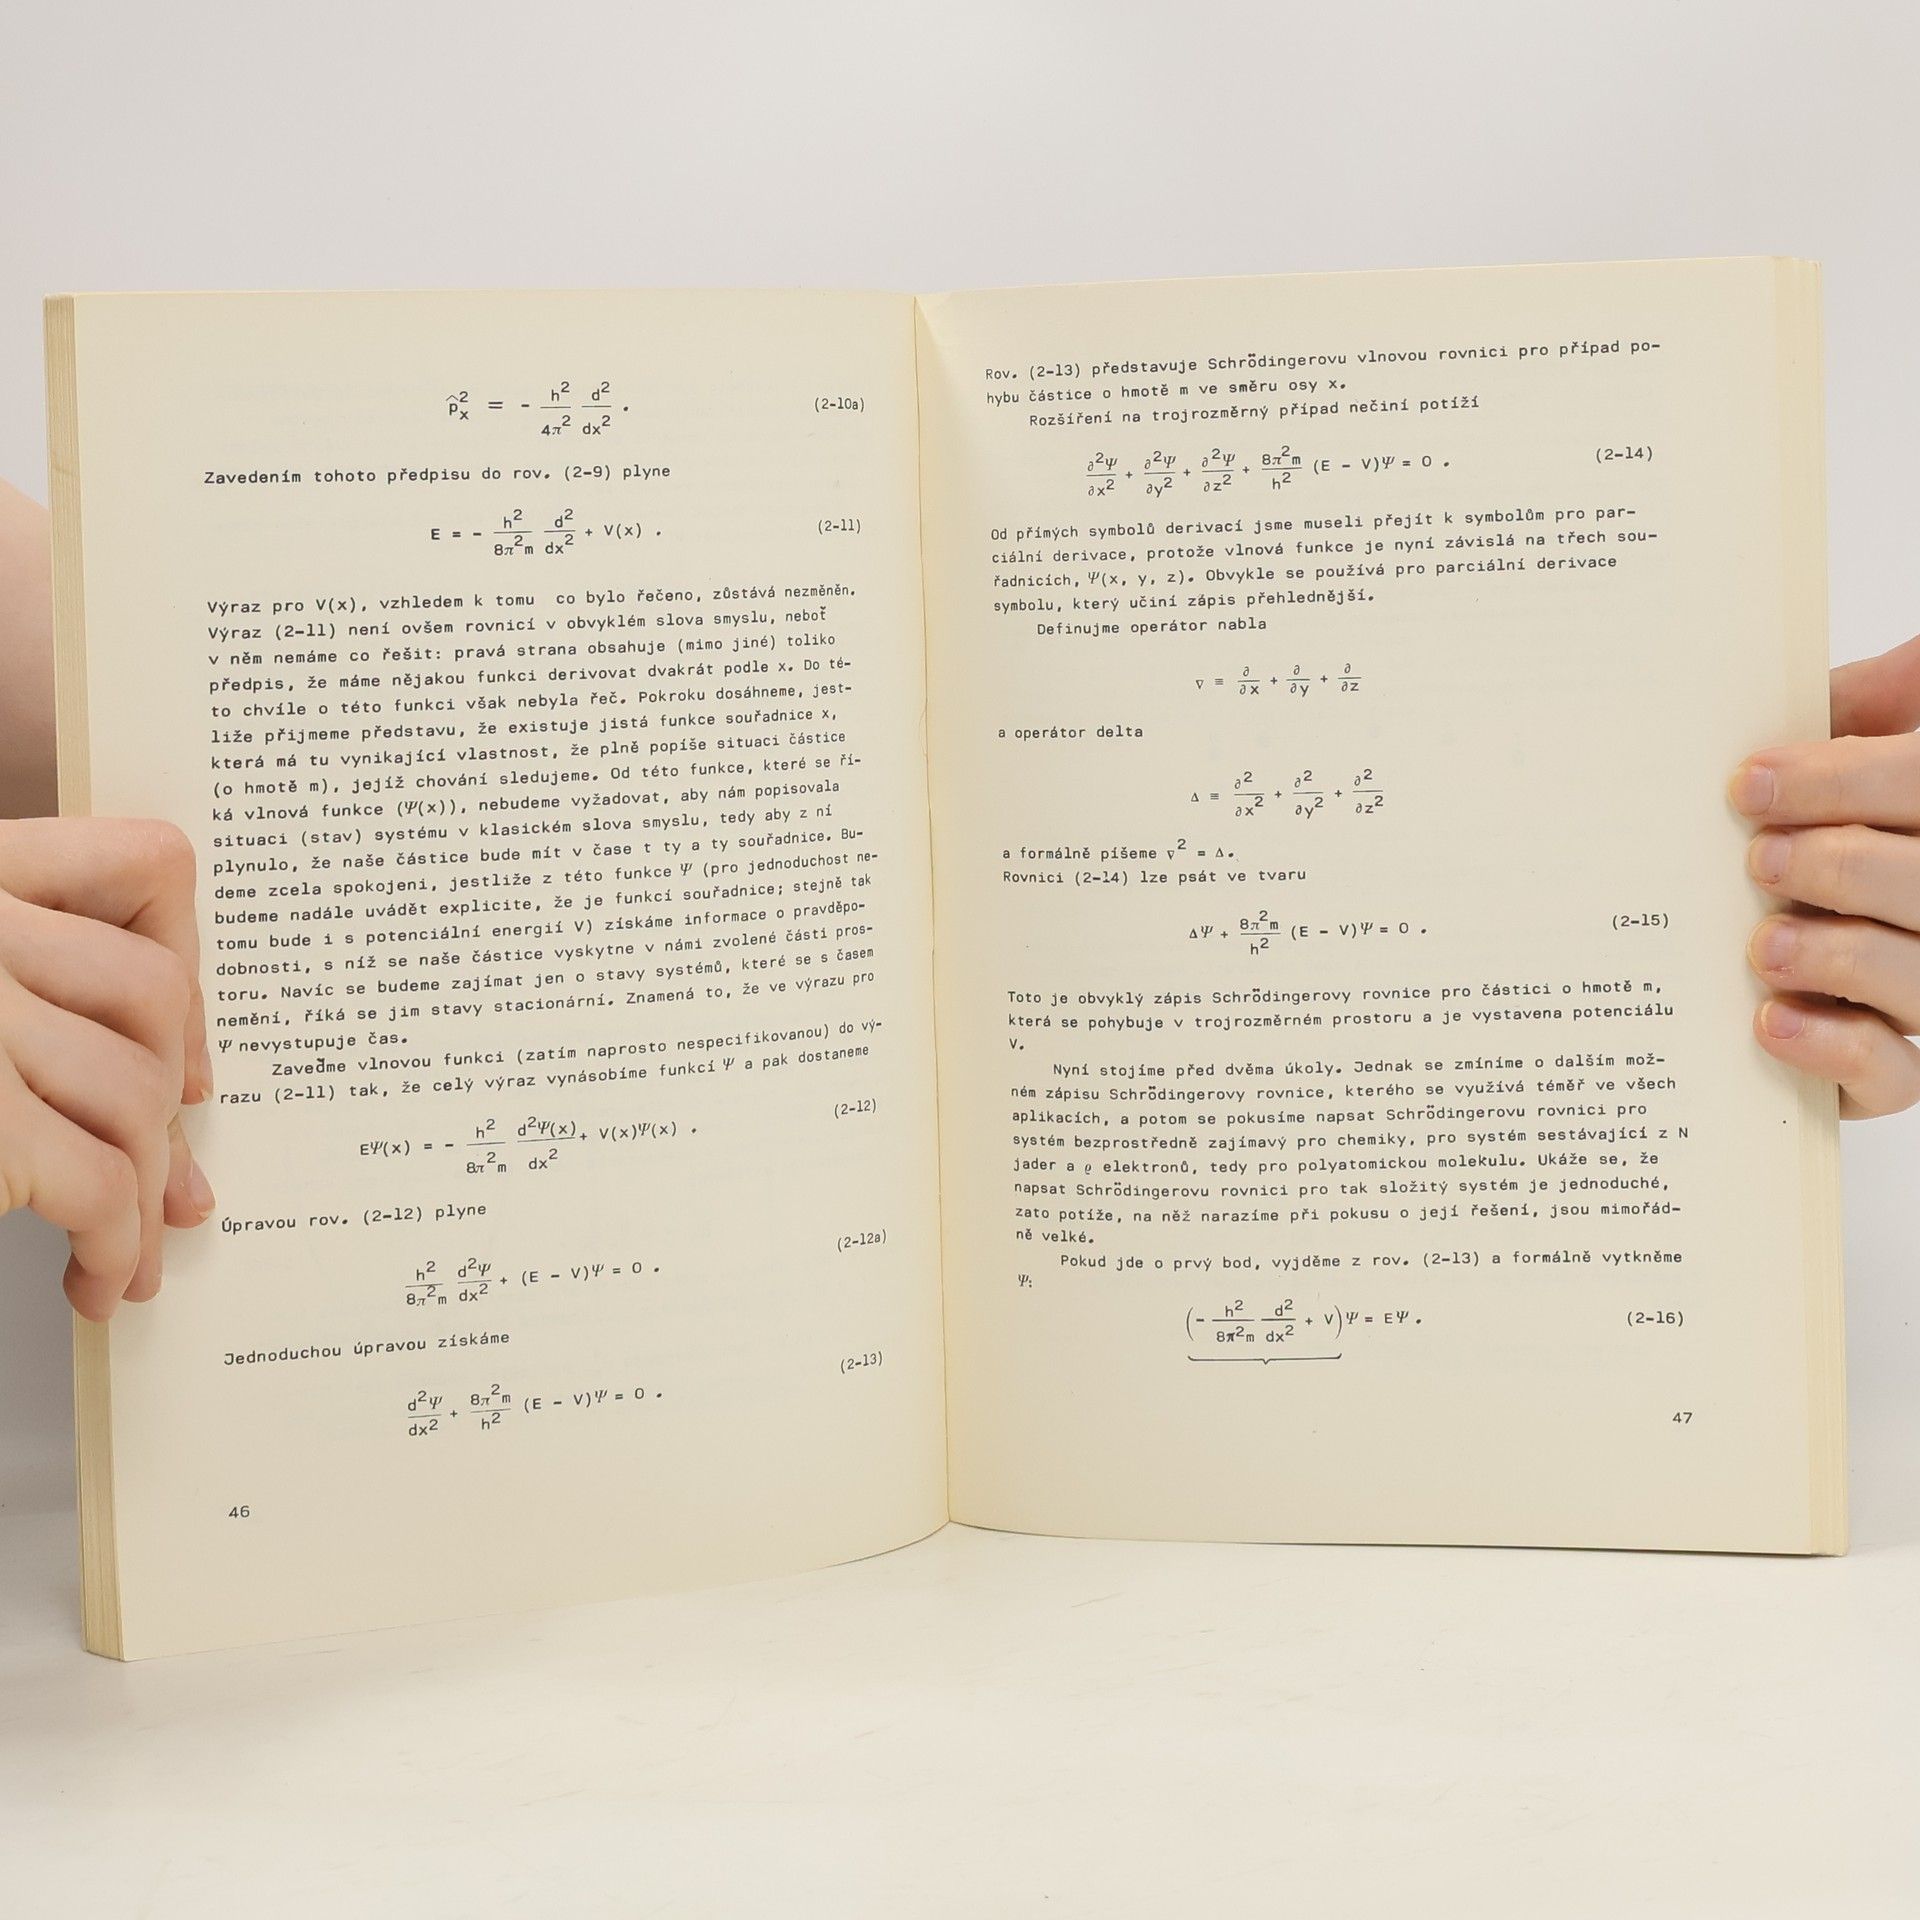 p̂ₓ² = - h²/4π² d²/dx² . (2-10a)
Zavedením tohoto předpisu do rov. (2-9) plyne
E = - h²/8π²m d²/dx² + V(x) . (2-11)
Výraz pro V(x), vzhledem k tomu co bylo řečeno, zůstává nezměněn.
Výraz (2-11) není ovšem rovnicí v obvyklém slova smyslu, neboť
v něm nemáme co řešit: pravá strana obsahuje (mimo jiné) toliko
předpis, že máme nějakou funkci derivovat dvakrát podle x. Do té-
to chvíle o této funkci však nebyla řeč. Pokroku dosáhneme, jest-
liže přijmeme představu, že existuje jistá funkce souřadnice x,
která má tu vynikající vlastnost, že plně popíše situaci částice
(o hmotě m), jejíž chování sledujeme. Od této funkce, které se ří-
ká vlnová funkce (Ψ(x)), nebudeme vyžadovat, aby nám popisovala
situaci (stav) systému v klasickém slova smyslu, tedy aby z ní
plynulo, že naše částice bude mít v čase t ty a ty souřadnice. Bu-
deme zcela spokojeni, jestliže z této funkce Ψ (pro jednoduchost ne-
budeme nadále uvádět explicite, že je funkcí souřadnice; stejně tak
tomu bude i s potenciální energií V) získáme informace o pravděpo-
dobnosti, s níž se naše částice vyskytne v námi zvolené části pros-
toru. Navíc se budeme zajímat jen o stavy systémů, které se s časem
nemění, říká se jim stavy stacionární. Znamená to, že ve výrazu pro
Ψ nevystupuje čas.
Zaveďme vlnovou funkci (zatím naprosto nespecifikovanou) do vý-
razu (2-11) tak, že celý výraz vynásobíme funkcí Ψ a pak dostaneme
EΨ(x) = - h²/8π²m d²Ψ(x)/dx² + V(x)Ψ(x) . (2-12)
Úpravou rov. (2-12) plyne
h²/8π²m d²Ψ/dx² + (E - V)Ψ = 0 . (2-12a)
Jednoduchou úpravou získáme
d²Ψ/dx² + 8π²m/h² (E - V)Ψ = 0 . (2-13)
46
Rov. (2-13) představuje Schrödingerovu vlnovou rovnici pro případ po-
hybu částice o hmotě m ve směru osy x.
Rozšíření na trojrozměrný případ nečiní potíží
∂²Ψ/∂x² + ∂²Ψ/∂y² + ∂²Ψ/∂z² + 8π²m/h² (E - V)Ψ = 0 . (2-14)
Od přímých symbolů derivací jsme museli přejít k symbolům pro par-
ciální derivace, protože vlnová funkce je nyní závislá na třech sou-
řadnicích, Ψ(x, y, z). Obvykle se používá pro parciální derivace
symbolu, který učiní zápis přehlednější.
Definujme operátor nabla
∇ ≡ ∂/∂x + ∂/∂y + ∂/∂z
a operátor delta
Δ ≡ ∂²/∂x² + ∂²/∂y² + ∂²/∂z²
a formálně píšeme ∇² = Δ.
Rovnici (2-14) lze psát ve tvaru
ΔΨ + 8π²m/h² (E - V)Ψ = 0 . (2-15)
Toto je obvyklý zápis Schrödingerovy rovnice pro částici o hmotě m,
která se pohybuje v trojrozměrném prostoru a je vystavena potenciálu
V.
Nyní stojíme před dvěma úkoly. Jednak se zmíníme o dalším mož-
ném zápisu Schrödingerovy rovnice, kterého se využívá téměř ve všech
aplikacích, a potom se pokusíme napsat Schrödingerovu rovnici pro
systém bezprostředně zajímavý pro chemiky, pro systém sestávající z N
jader a ϱ elektronů, tedy pro polyatomickou molekulu. Ukáže se, že
napsat Schrödingerovu rovnici pro tak složitý systém je jednoduché,
zato potíže, na něž narazíme při pokusu o její řešení, jsou mimořád-
ně velké.
Pokud jde o prvý bod, vyjděme z rov. (2-13) a formálně vytkněme
Ψ:
(- h²/8π²m d²/dx² + V)Ψ = EΨ . (2-16)
47